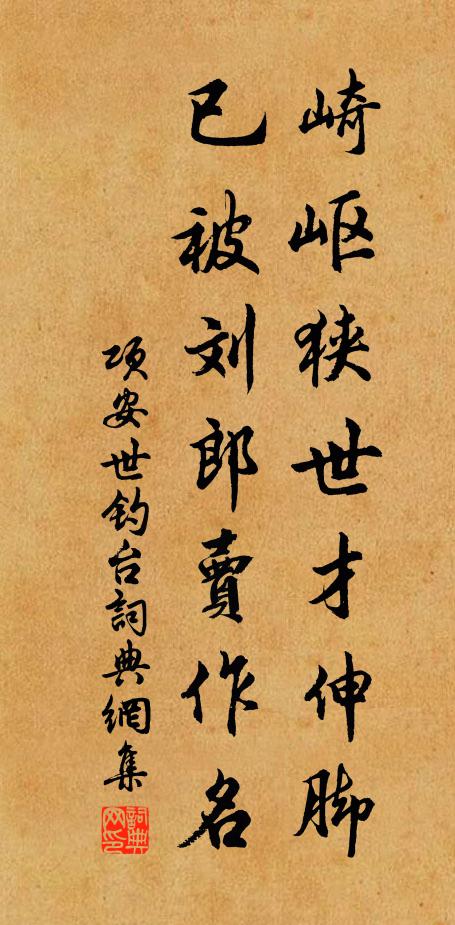 崎岖狭世才伸脚
已被刘郎賣作名
项安世钓台詞典網集
詞典网印